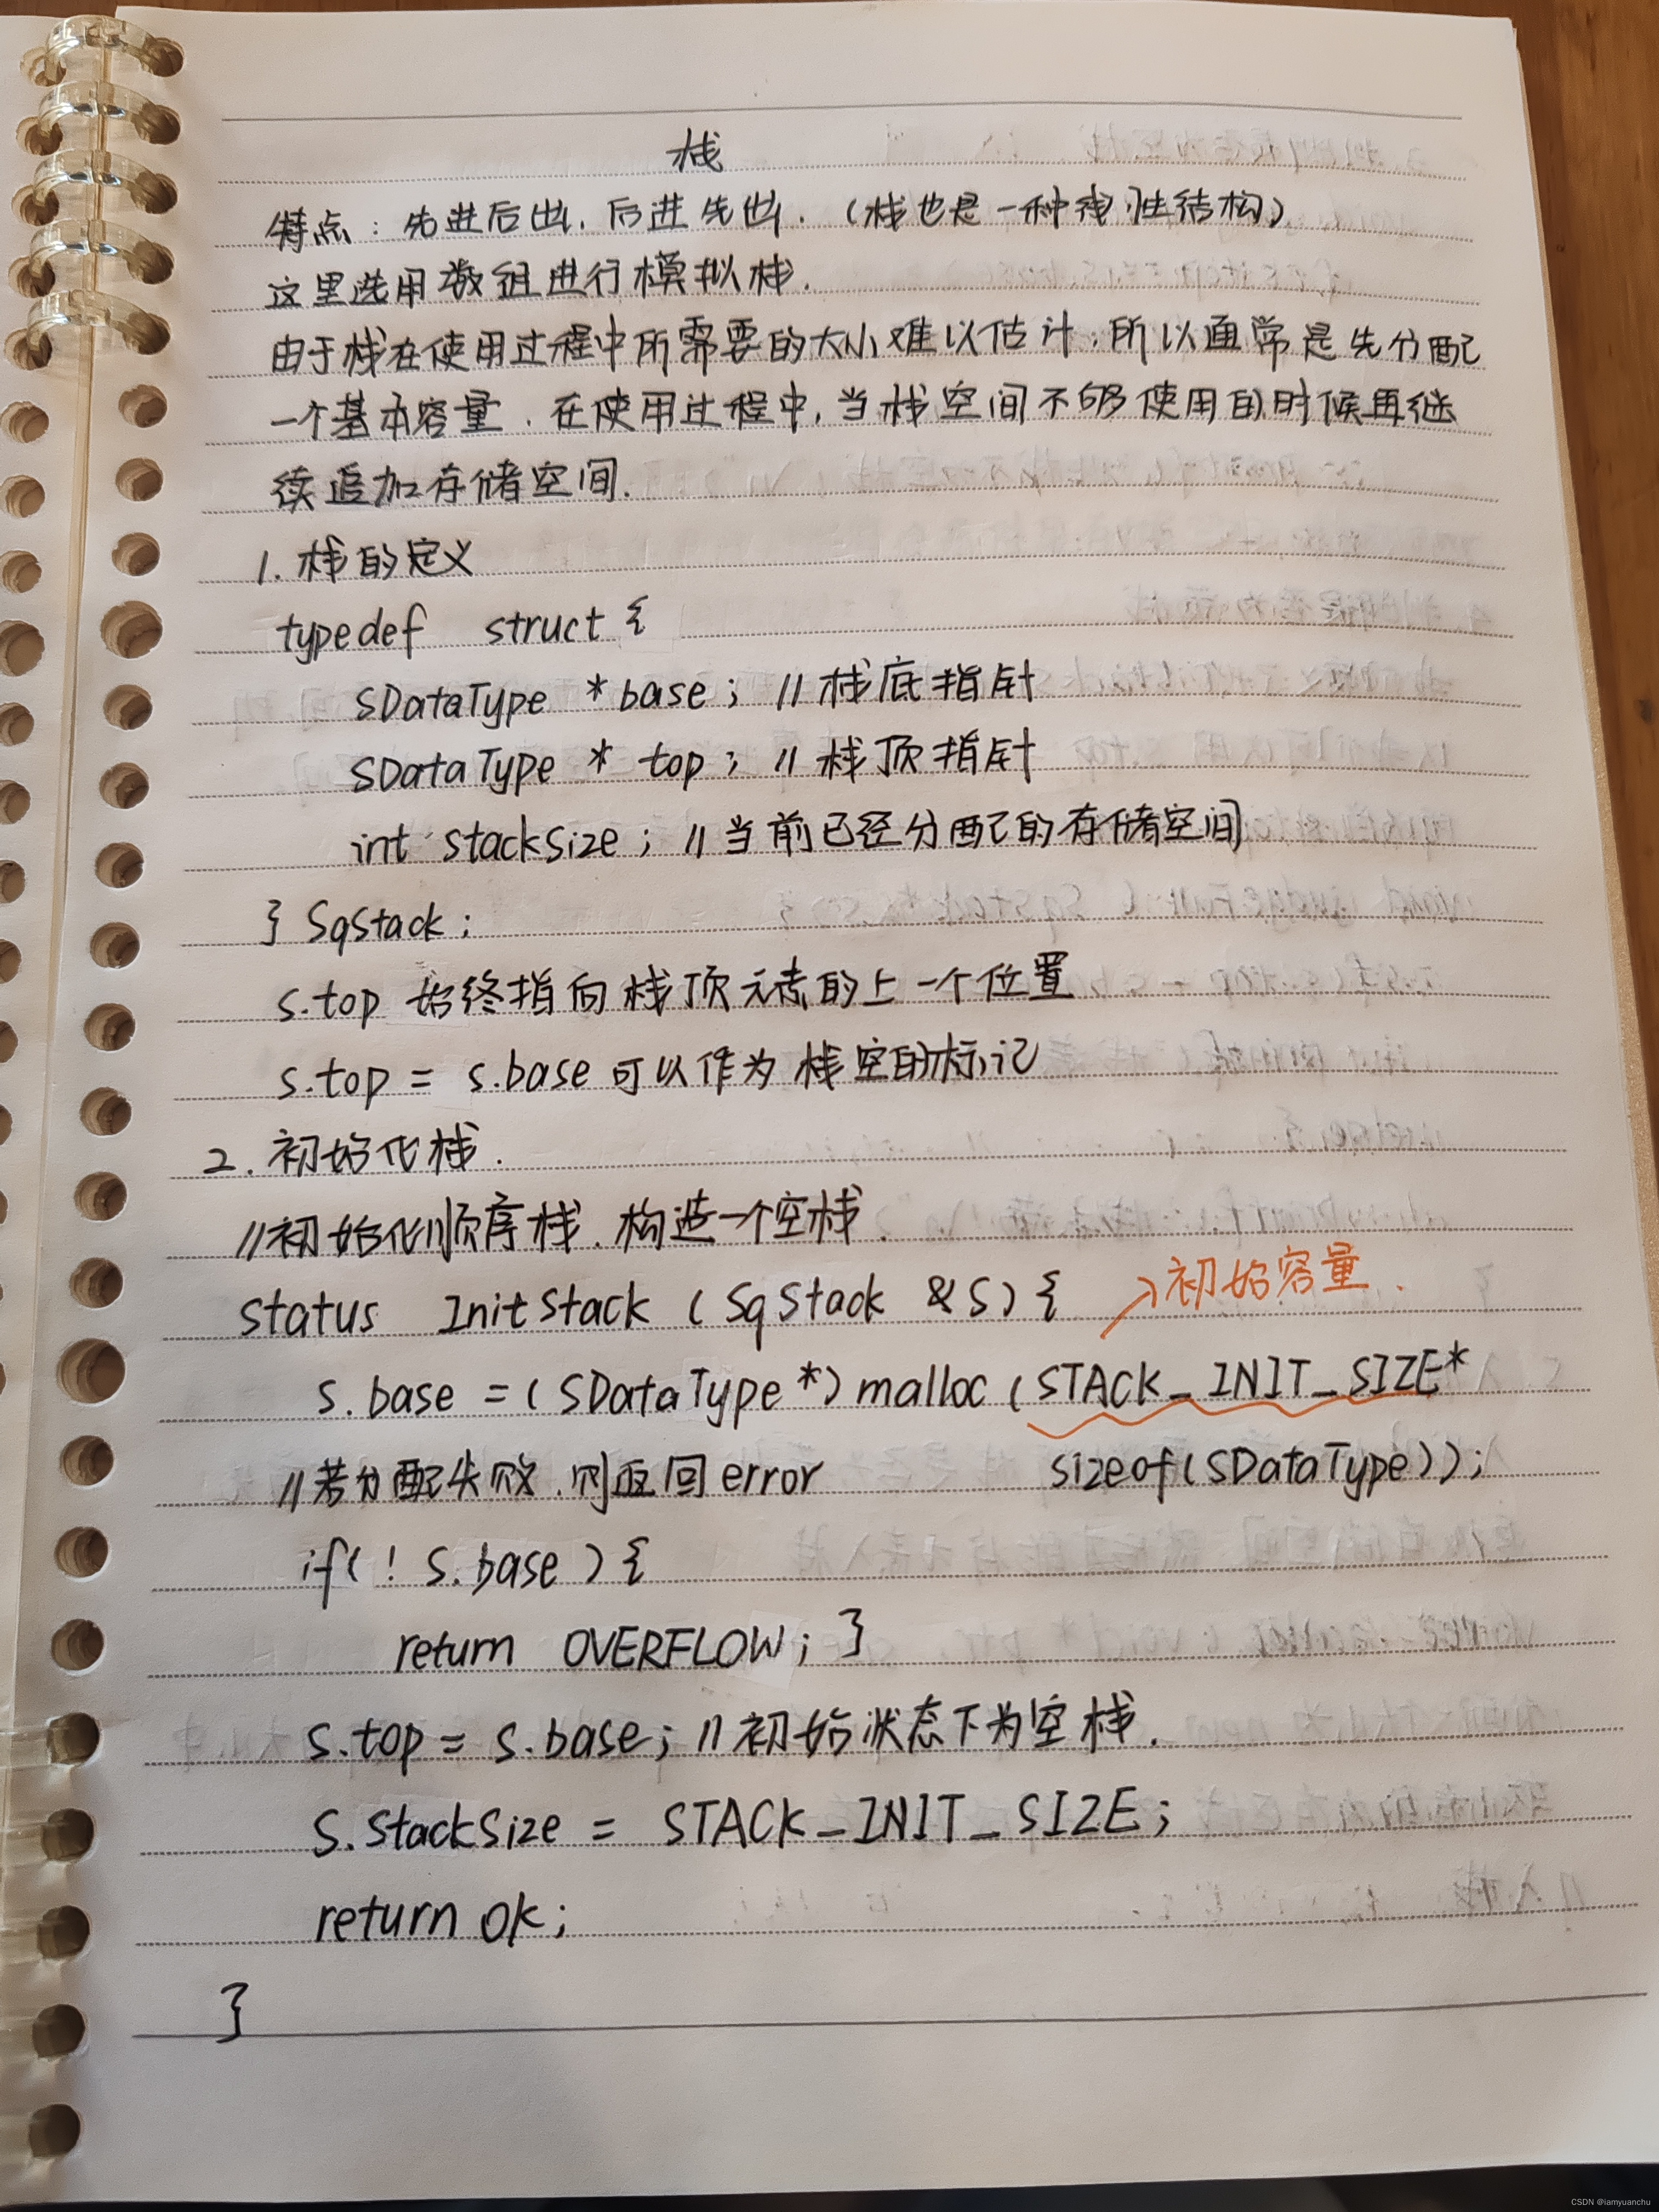 栈
特点：先进后出，后进先出．（栈也是一种线性结构）
这里选用数组进行模拟栈．
由于栈在使用过程中所需要的大小难以估计，所以通常是先分配
一个基本容量．在使用过程中，当栈空间不够使用的时候再继
续追加存储空间．
1. 栈的定义
typedef struct {
SDataType * base; // 栈底指针
SDataType * top; // 栈顶指针
int stacksize; // 当前已经分配的存储空间
} SqStack;
s.top 始终指向栈顶元素的上一个位置
s.top = s.base 可以作为栈空的标记
2. 初始化栈．
//初始化顺序栈．构造一个空栈．
status InitStack (SqStack &S) {
初始容量．
s.base = (SDataType *) malloc (STACK_INIT_SIZE*
//若分配失败．则返回error sizeof(SDataType));
if( ! s.base ) {
return OVERFLOW; }
s.top = s.base; //初始状态下为空栈．
S.stacksize = STACK_INIT_SIZE;
return ok;
}
CSDN @iamyuanchu